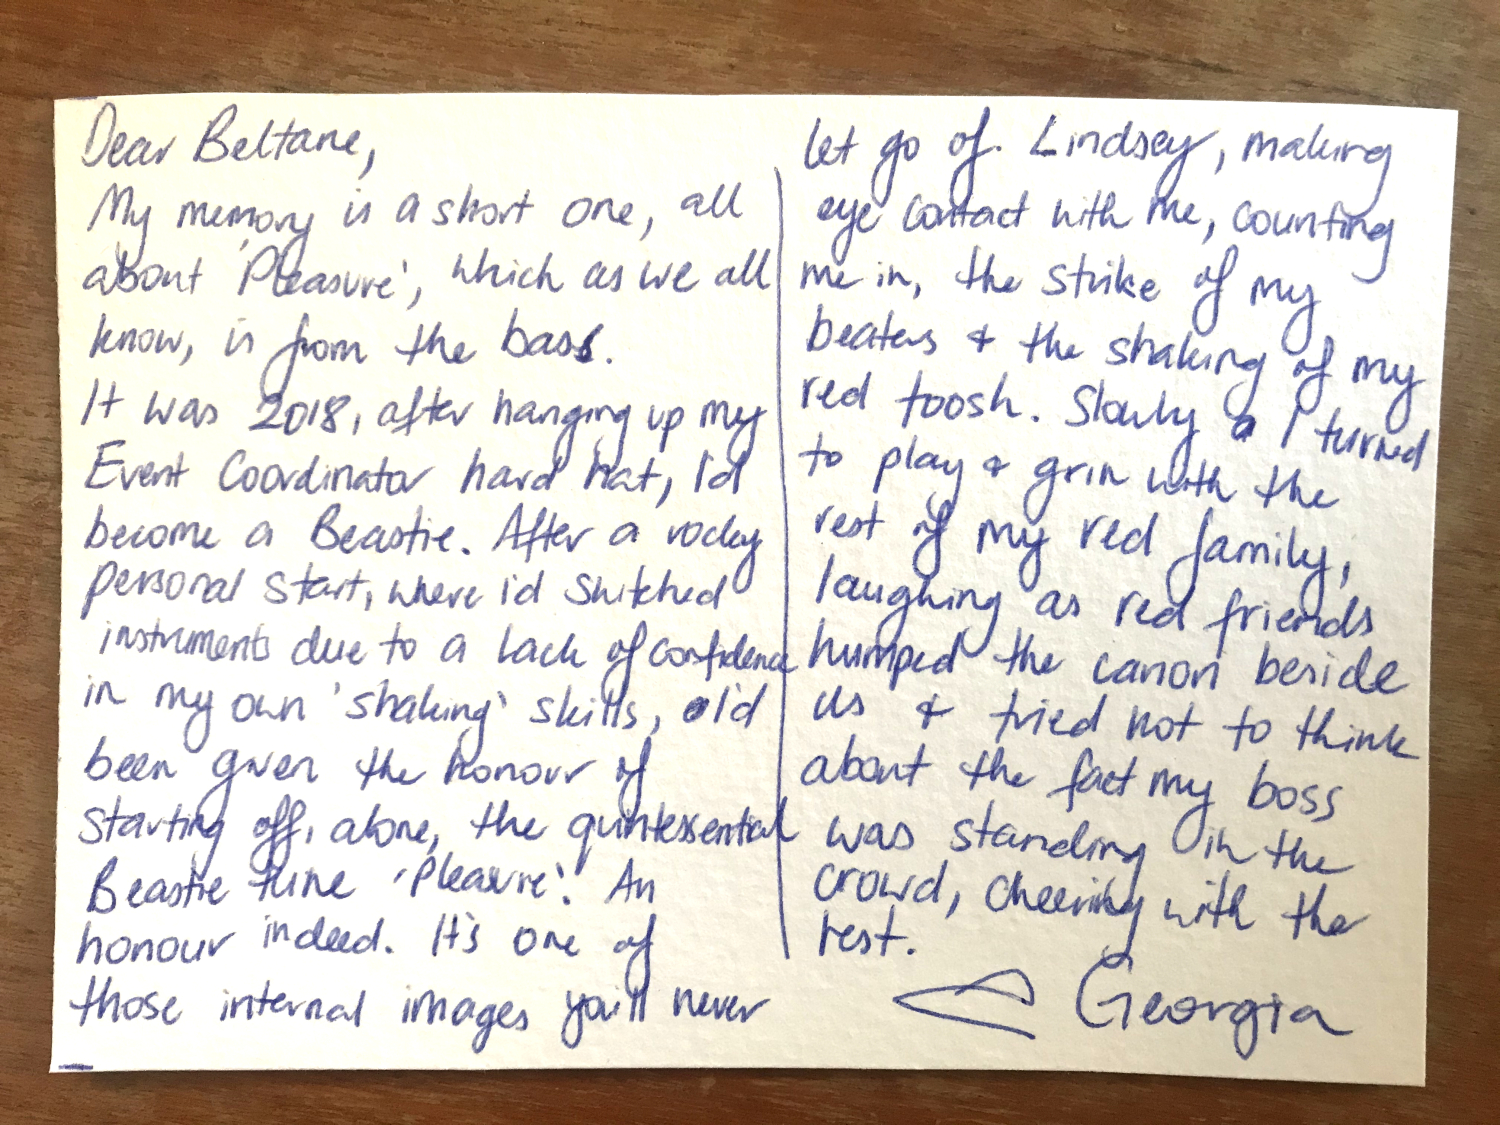 Dear Beltane,
My memory is a short one, all
about 'Pleasure', which as we all
know, is from the bass.
It was 2018, after hanging up my
Event Coordinator hard hat, I'd
become a Beastie. After a rocky
personal start, where i'd switched
instruments due to a lack of confidence
in my own 'shaking' skills, I'd
been given the honour of
starting off, alone, the quintessential
Beastie tune 'Pleasure'. An
honour indeed. It's one of
those internal images you'll never
let go of. Lindsey, making
eye contact with me, counting
me in, the strike of my
beaters & the shaking of my
red toosh. Slowly I turned
to play & grin with the
rest of my red family,
laughing as red friends
humped the canon beside
us & tried not to think
about the fact my boss
was standing in the
crowd, cheering with the
rest.
Georgia